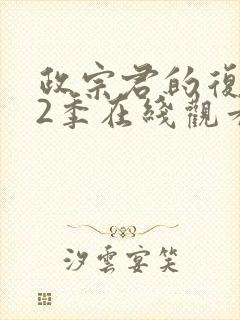 政宗君的復
2季在綫觀
汐雲宴笑